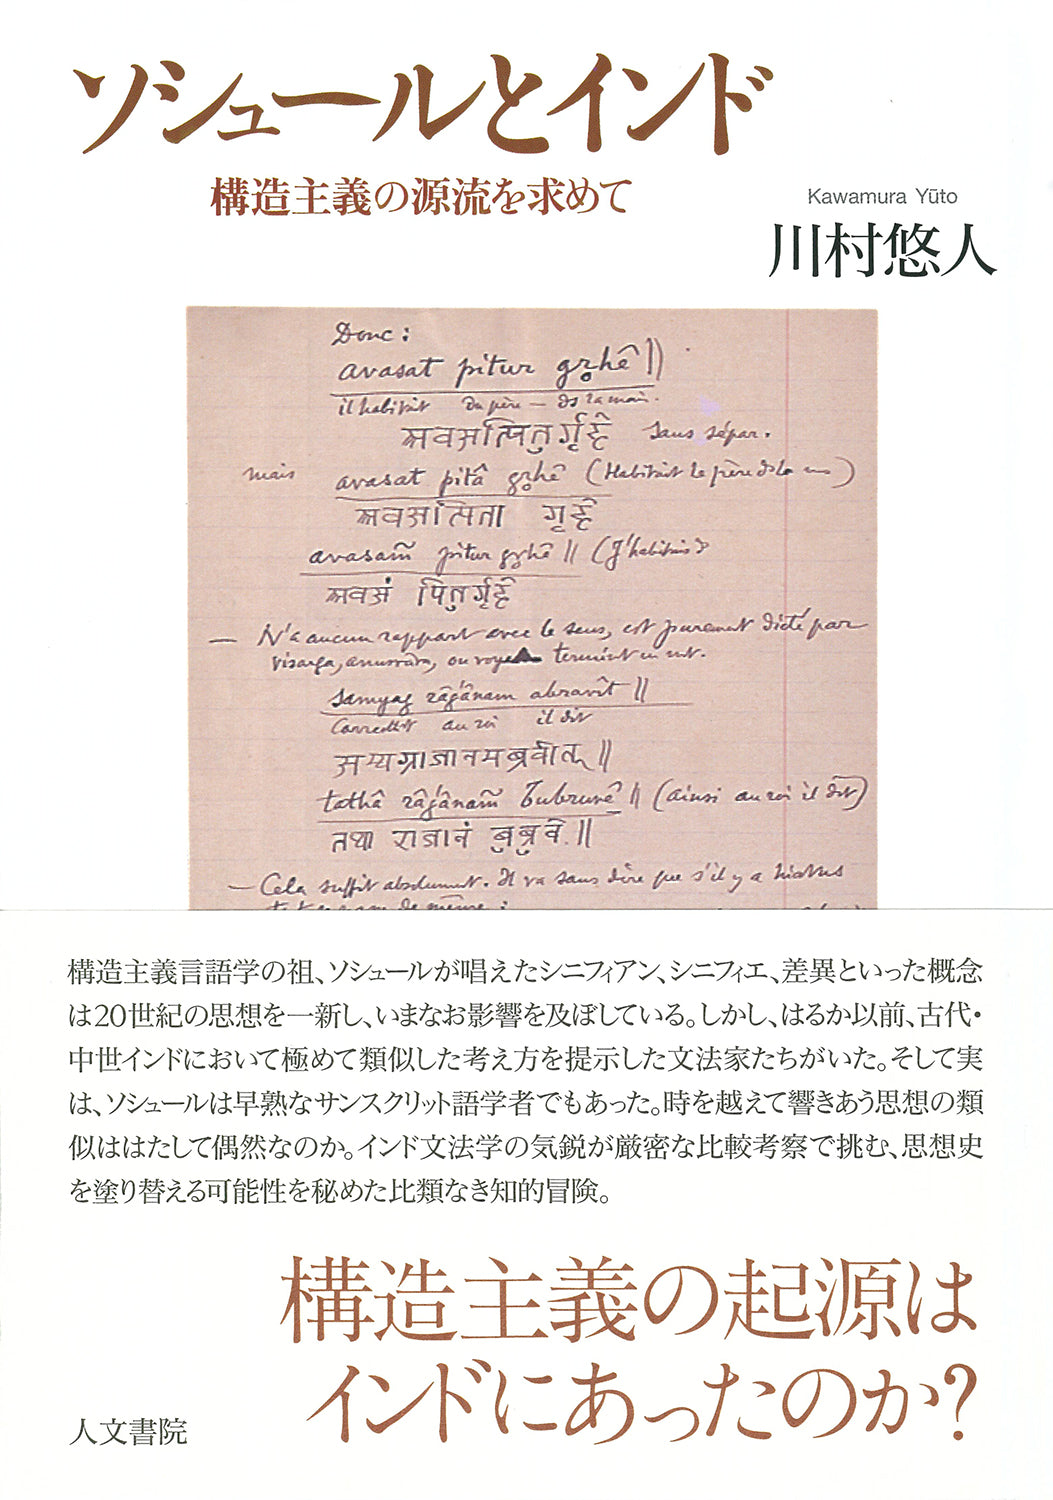 ソシュールとインド
構造主義の源流を求めて
Kawamura Yūto
川村悠人
Donc :
avasat pitur gr̥hê ||
il habitait du père — ds la mais.
अवसत्पितुर्गृहे sans sépar.
mais avasat pitâ gr̥hê (habitait le père ds la
अवसत्पिता गृहे
avasam̃ pitur gr̥hê || (J'habitais
अवसं पितुर्गृहे
— N'a aucun rapport avec le sens, est purement dicté par
visarga, anusvâra, ou
samyag râǵânam abravît ||
Correctt au roi il dit
सम्यग्राजानमब्रवीत् ||
tathâ râǵânam̃ bubruvê || (ainsi au roi il dit)
तथा राजानं बुब्रुवे ||
— Cela suffit absolument. Il va sans dire que s'il y a hiatus
de même :
構造主義言語学の祖、ソシュールが唱えたシニフィアン、シニフィエ、差異といった概念
は20世紀の思想を一新し、いまなお影響を及ぼしている。しかし、はるか以前、古代・
中世インドにおいて極めて類似した考え方を提示した文法家たちがいた。そして実
は、ソシュールは早熟なサンスクリット語学者でもあった。時を越えて響きあう思想の類
似ははたして偶然なのか。インド文法学の気鋭が厳密な比較考察で挑む、思想史
を塗り替える可能性を秘めた比類なき知的冒険。
構造主義の起源は
インドにあったのか?
人文書院